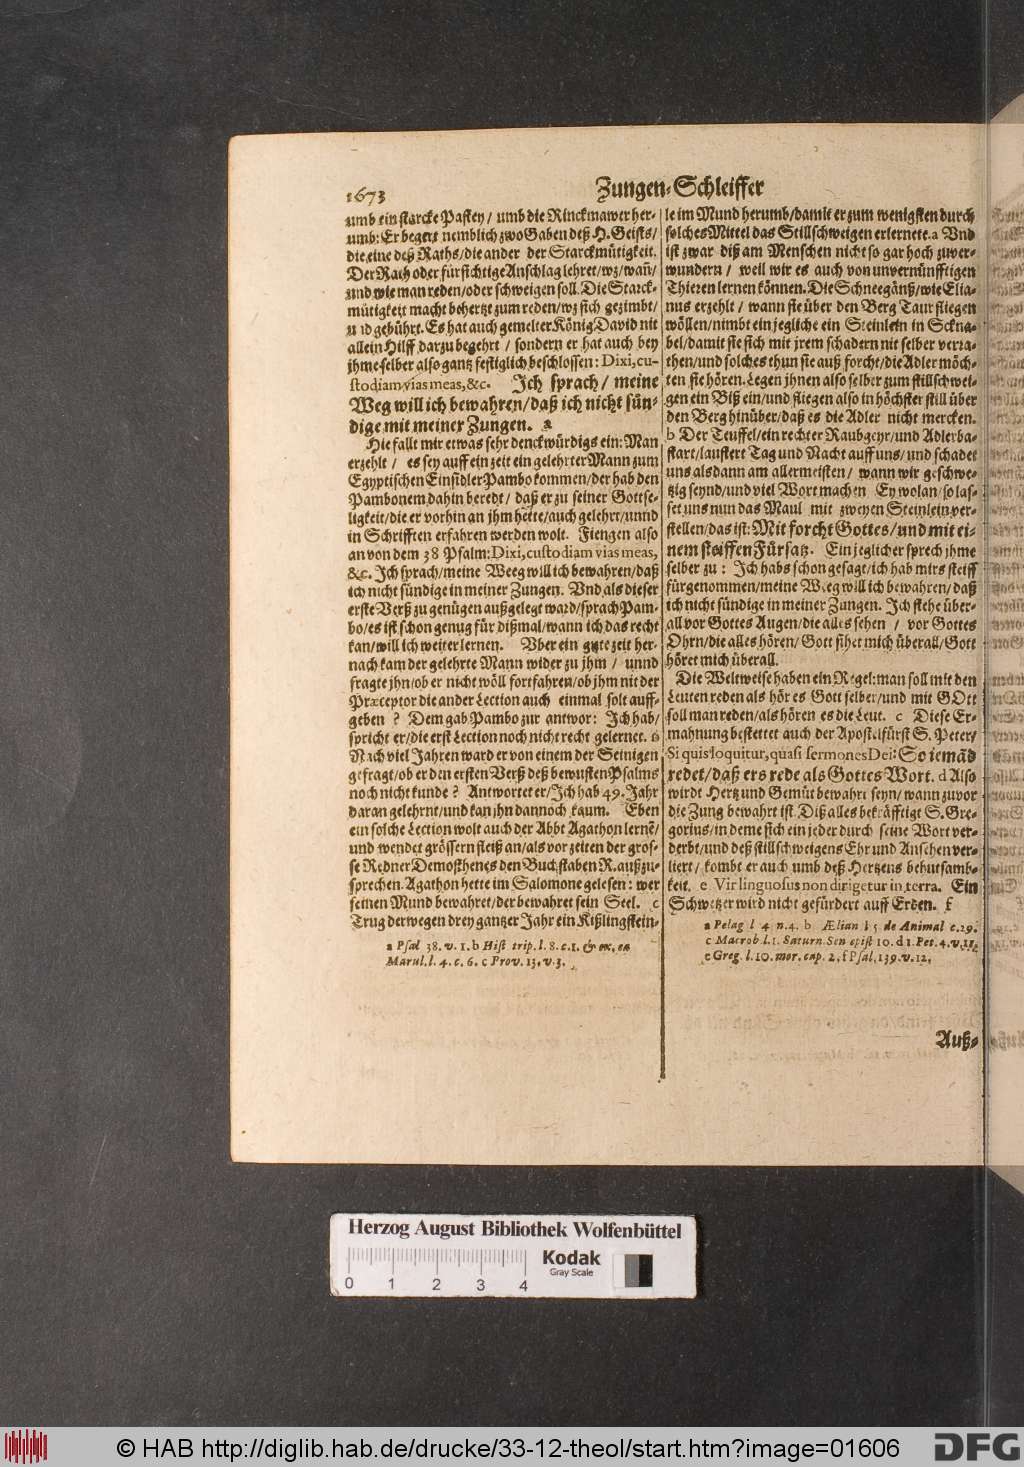 1673
Zungen-Schleiffer
umb ein starcke Pastey / umb die Rinckmawer her-
umb: Er begert nemblich zwo Gaben deß H. Geists /
die eine deß Raths / die ander der Starckmütigkeit.
Der Rath oder fürsichtige Anschlag lehret / wz / wañ /
und wie man reden / oder schweigen soll. Die Starck-
mütigkeit macht behertzt zum reden / wz sich gezimbt /
und gebührt. Es hat auch gemelter König David nit
allein Hilff darzu begehrt / sondern er hat auch bey
jhme selber also gantz festiglich beschlossen: Dixi, cu-
stodiam vias meas, &c. Ich sprach / meine
Weg will ich bewahren / daß ich nicht sün-
dige mit meiner Zungen. a
Hie fallt mir etwas sehr denckwürdigs ein: Man
erzehlt / es sey auff ein zeit ein gelehrter Mann zum
Egyptischen Einsidler Pambo kommen / der hab den
Pambonem dahin beredt / daß er zu seiner Gottse-
ligkeit / die er vorhin an jhm hette / auch gelehrt / unnd
in Schrifften erfahren werden wolt. Fiengen also
an von dem 38 Psalm: Dixi, custodiam vias meas,
&c. Ich sprach / meine Weeg will ich bewahren / daß
ich nicht sündige in meiner Zungen. Und als dieser
erste Verß zu genügen außgelegt ward / sprach Pam-
bo / es ist schon genug für dißmal / wann ich das recht
kan / will ich weiter lernen. Uber ein gute zeit her-
nach kam der gelehrte Mann wider zu jhm / unnd
fragte jhn / ob er nicht wöll fortfahren / ob jhm nit der
Præceptor die ander Lection auch einmal solt auff-
geben ? Dem gab Pambo zur antwor: Ich hab /
spricht er / die erst Lection noch nicht recht gelernet. b
Nach viel Jahren ward er von einem der Seinigen
gefragt / ob er den ersten Verß deß bewusten Psalms
noch nicht kunde ? Antwortet er / Ich hab 49. Jahr
daran gelehrnt / und kan jhn dannoch kaum. Eben
ein solche Lection wolt auch der Abbt Agathon lernē /
und wendet grössern fleiß an / als vor zeiten der gros-
se Redner Demosthenes den Buchstaben R. außzu-
sprechen. Agathon hette im Salomone gelesen: wer
seinen Mund bewahret / der bewahret sein Seel. c
Trug derwegen drey gantzer Jahr ein Kißlingstein-
a Psal 38. v. 1. b Hist trip. l. 8. c. 1. & ex. ea
Marul. l. 4. c. 6. c Prov. 13. v. 3.
le im Mund herumb / damit er zum wenigsten durch
solches Mittel das Stillschweigen erlernete. a Und
ist zwar diß am Menschen nicht so gar hoch zuver-
wundern / weil wir es auch von unvernünfftigen
Thieren lernen können. Die Schneegänß / wie Elia-
nus erzehlt / wann sie über den Berg Taur fliegen
wöllen / nimbt ein jegliche ein Steinlein in Schna-
bel / damit sie sich mit jrem schadern nit selber verra-
then / und solches thun sie auß forcht / die Adler möch-
ten sie hören. Legen jhnen also selber zum stillschwei-
gen ein Biß ein / und fliegen also in höchster still über
den Berg hinüber / daß es die Adler nicht mercken.
b Der Teuffel / ein rechter Raubgeyr / und Adlerba-
start / laustert Tag und Nacht auff uns / und schadet
uns alsdann am allermeisten / wann wir geschwe-
tzig seynd / und viel Wort machen Ey wolan / so las-
set uns nun das Maul mit zweyen Steinlein ver-
stellen / das ist: Mit forcht Gottes / und mit ei-
nem steiffen Fürsatz. Ein jeglicher sprech jhme
selber zu : Ich habs schon gesagt / ich hab mirs steiff
fürgenommen / meine Weeg will ich bewahren / daß
ich nicht sündige in meiner Zungen. Ich stehe über-
all vor Gottes Augen / die alles sehen / vor Gottes
Ohrn / die alles hören / Gott sihet mich überall / Gott
höret mich überall.
Die Weltweise haben ein Regel: man soll mit den
Leuten reden als hör es Gott selber / und mit GOtt
soll man reden / als hören es die Leut. c Diese Er-
mahnung bestettet auch der Apostelfürst S. Peter /
Si quis loquitur, quasi sermones Dei: So iemād
redet / daß ers rede als Gottes Wort. d Also
wirdt Hertz und Gemüt bewahrt seyn / wann zuvor
die Zung bewahrt ist. Diß alles bekräfftigt S. Gre-
gorius / in deme sich ein jeder durch seine Wort ver-
derbt / und deß stillschweigens Ehr und Ansehen ver-
liert / kombt er auch umb deß Hertzens behutsamb-
keit. e Vir linguosus non dirigetur in terra. Ein
Schwetzer wird nicht gefürdert auff Erden. f
a Pelag l 4 n. 4. b Ælian l 5 de Animal c. 29.
c Macrob l. 1. Saturn. Sen epist 10. d 1. Pet. 4. v. 11.
e Greg. l. 10. mor. cap. 2. f Psal. 139. v. 12.
Auß-
Herzog August Bibliothek Wolfenbüttel
Kodak
Gray Scale
0 1 2 3 4
© HAB http://diglib.hab.de/drucke/33-12-theol/start.htm?image=01606
DFG